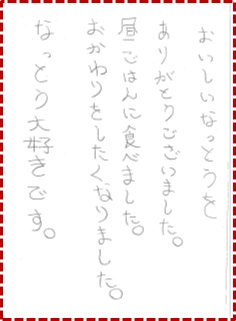 おいしいなっとうを
ありがとうございました。
昼ごはんに食べました。
おかわりをしたくなりました。
なっとう大好きです。